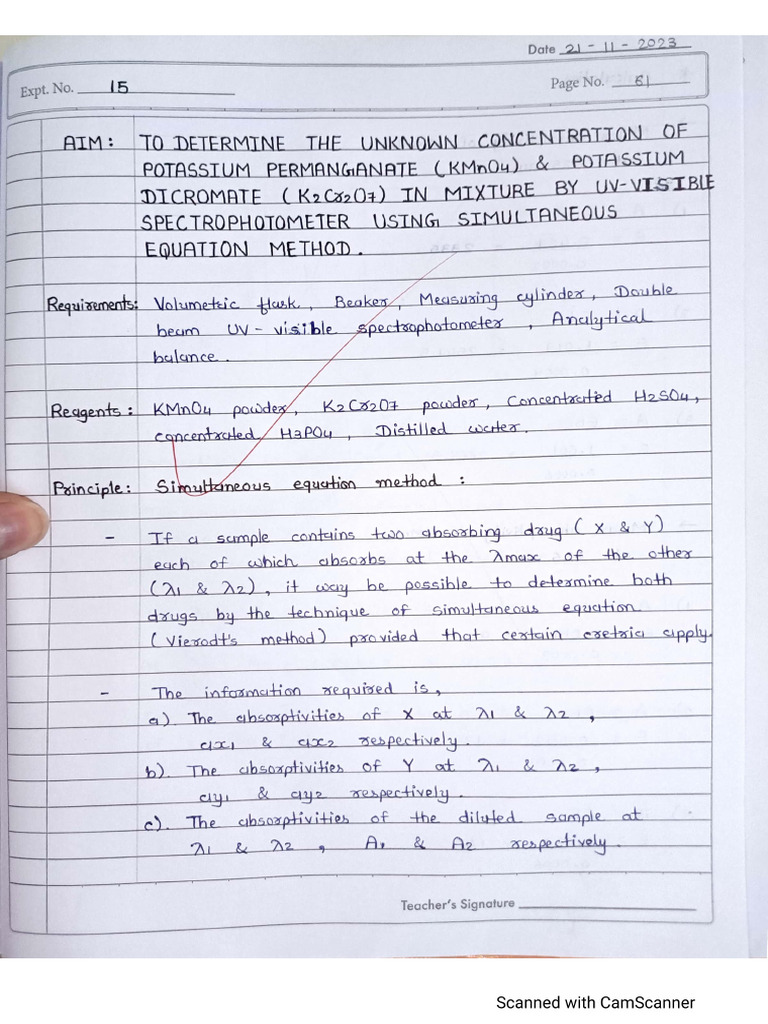 Date 21-11-2023
Expt. No. 15
Page No. 61
AIM: TO DETERMINE THE UNKNOWN CONCENTRATION OF
POTASSIUM PERMANGANATE (KMnO4) & POTASSIUM
DICROMATE (K2Cr2O7) IN MIXTURE BY UV-VISIBLE
SPECTROPHOTOMETER USING SIMULTANEOUS
EQUATION METHOD.
Requirements: Volumetric flask, Beaker, Measuring cylinder, Double
beam UV-visible spectrophotometer, Analytical
balance.
Reagents: KMnO4 powder, K2Cr2O7 powder, Concentrated H2SO4,
concentrated H3PO4, Distilled water.
Principle: Simultaneous equation method :
- If a sample contains two absorbing drug (X & Y)
each of which absorbs at the λmax of the other
(λ1 & λ2), it way be possible to determine both
drugs by the technique of simultaneous equation
(Vierodt's method) provided that certain cretria apply.
- The information required is,
a). The absorptivities of X at λ1 & λ2,
ax1 & ax2 respectively.
b). The absorptivities of Y at λ1 & λ2,
ay1 & ay2 respectively.
c). The absorptivities of the diluted sample at
λ1 & λ2, A1 & A2 respectively.
Teacher's Signature
Scanned with CamScanner